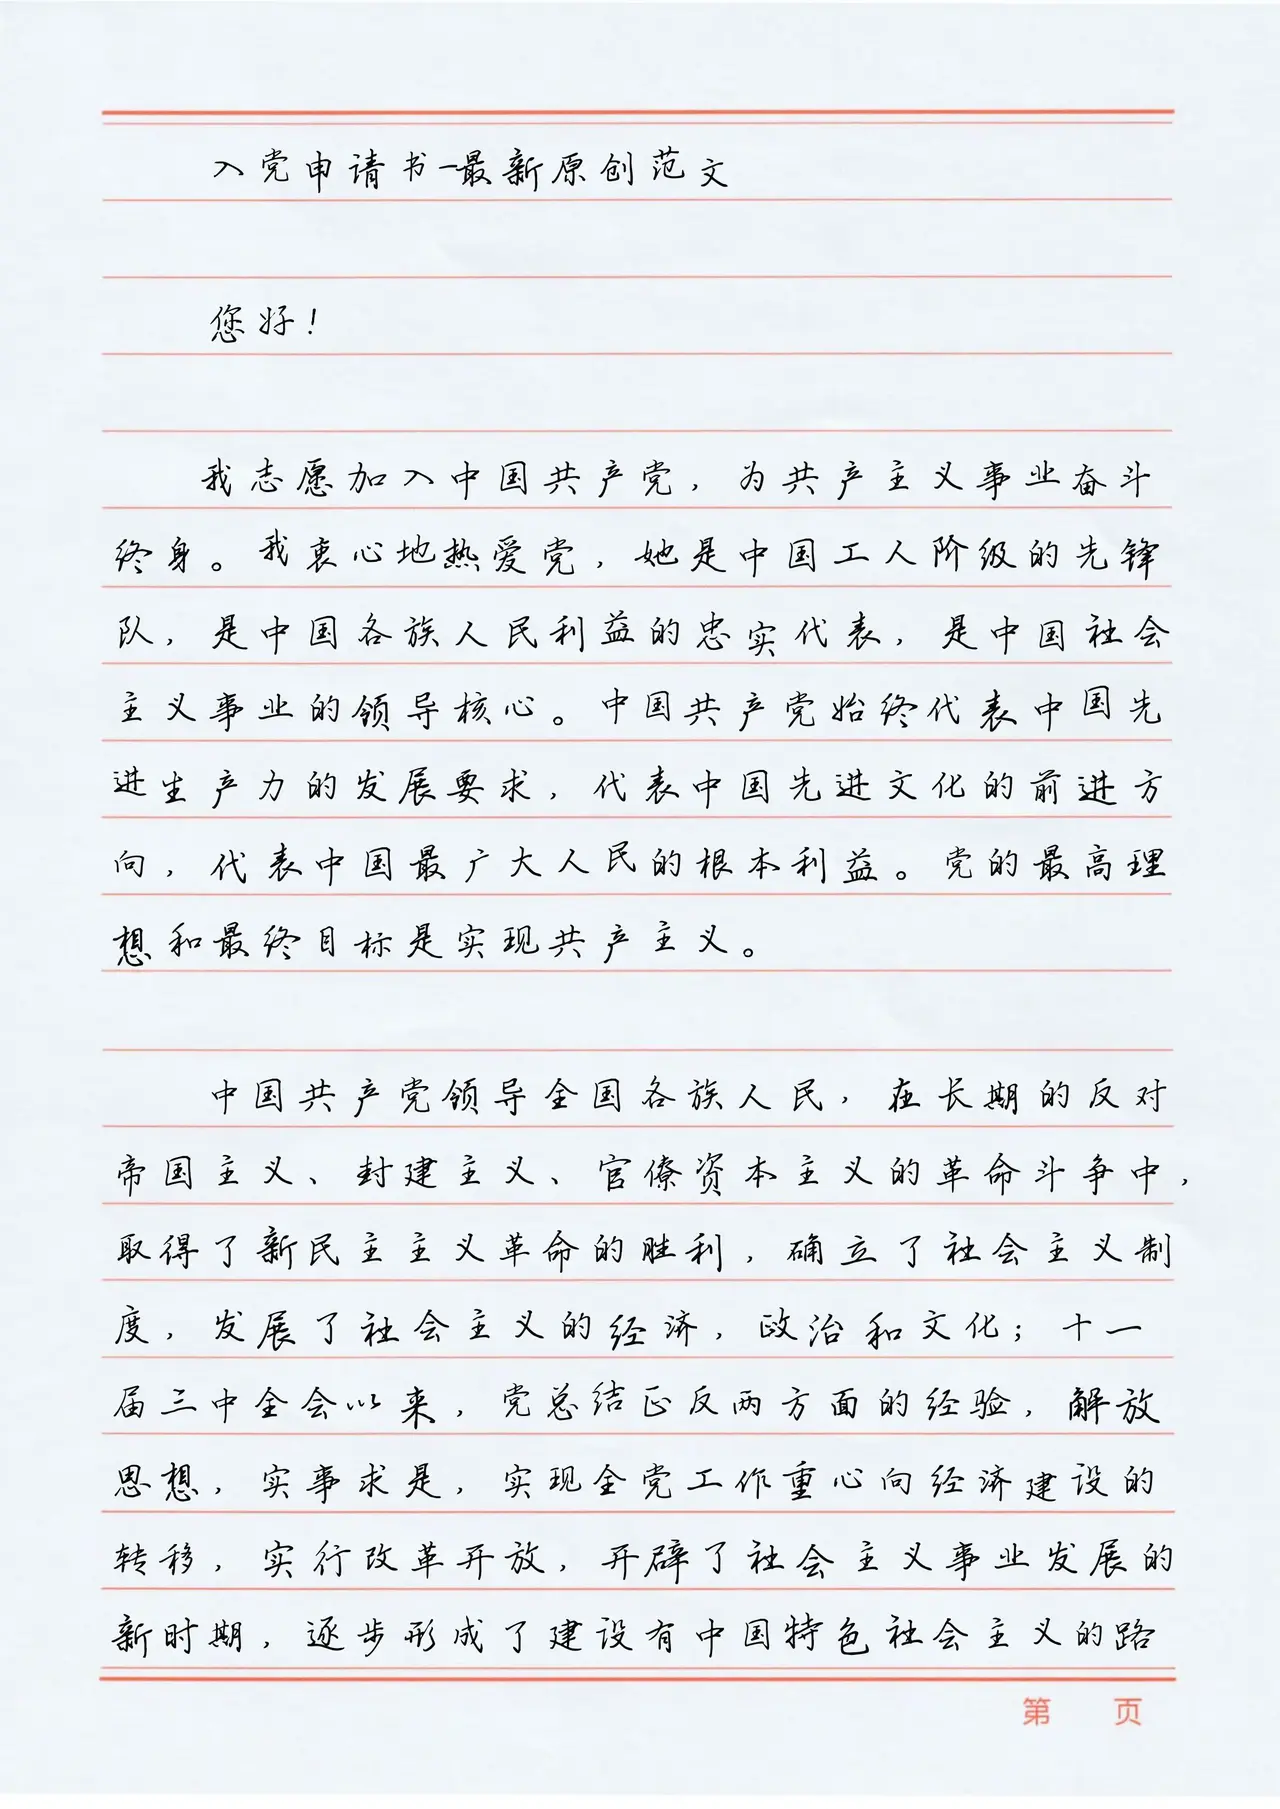 入党申请书-最新原创范文
您好!
我志愿加入中国共产党,为共产主义事业奋斗
终身。我衷心地热爱党,她是中国工人阶级的先锋
队,是中国各族人民利益的忠实代表,是中国社会
主义事业的领导核心。中国共产党始终代表中国先
进生产力的发展要求,代表中国先进文化的前进方
向,代表中国最广大人民的根本利益。党的最高理
想和最终目标是实现共产主义。
中国共产党领导全国各族人民,在长期的反对
帝国主义、封建主义、官僚资本主义的革命斗争中,
取得了新民主主义革命的胜利,确立了社会主义制
度,发展了社会主义的经济,政治和文化;十一
届三中全会以来,党总结正反两方面的经验,解放
思想,实事求是,实现全党工作重心向经济建设的
转移,实行改革开放,开辟了社会主义事业发展的
新时期,逐步形成了建设有中国特色社会主义的路
第 页